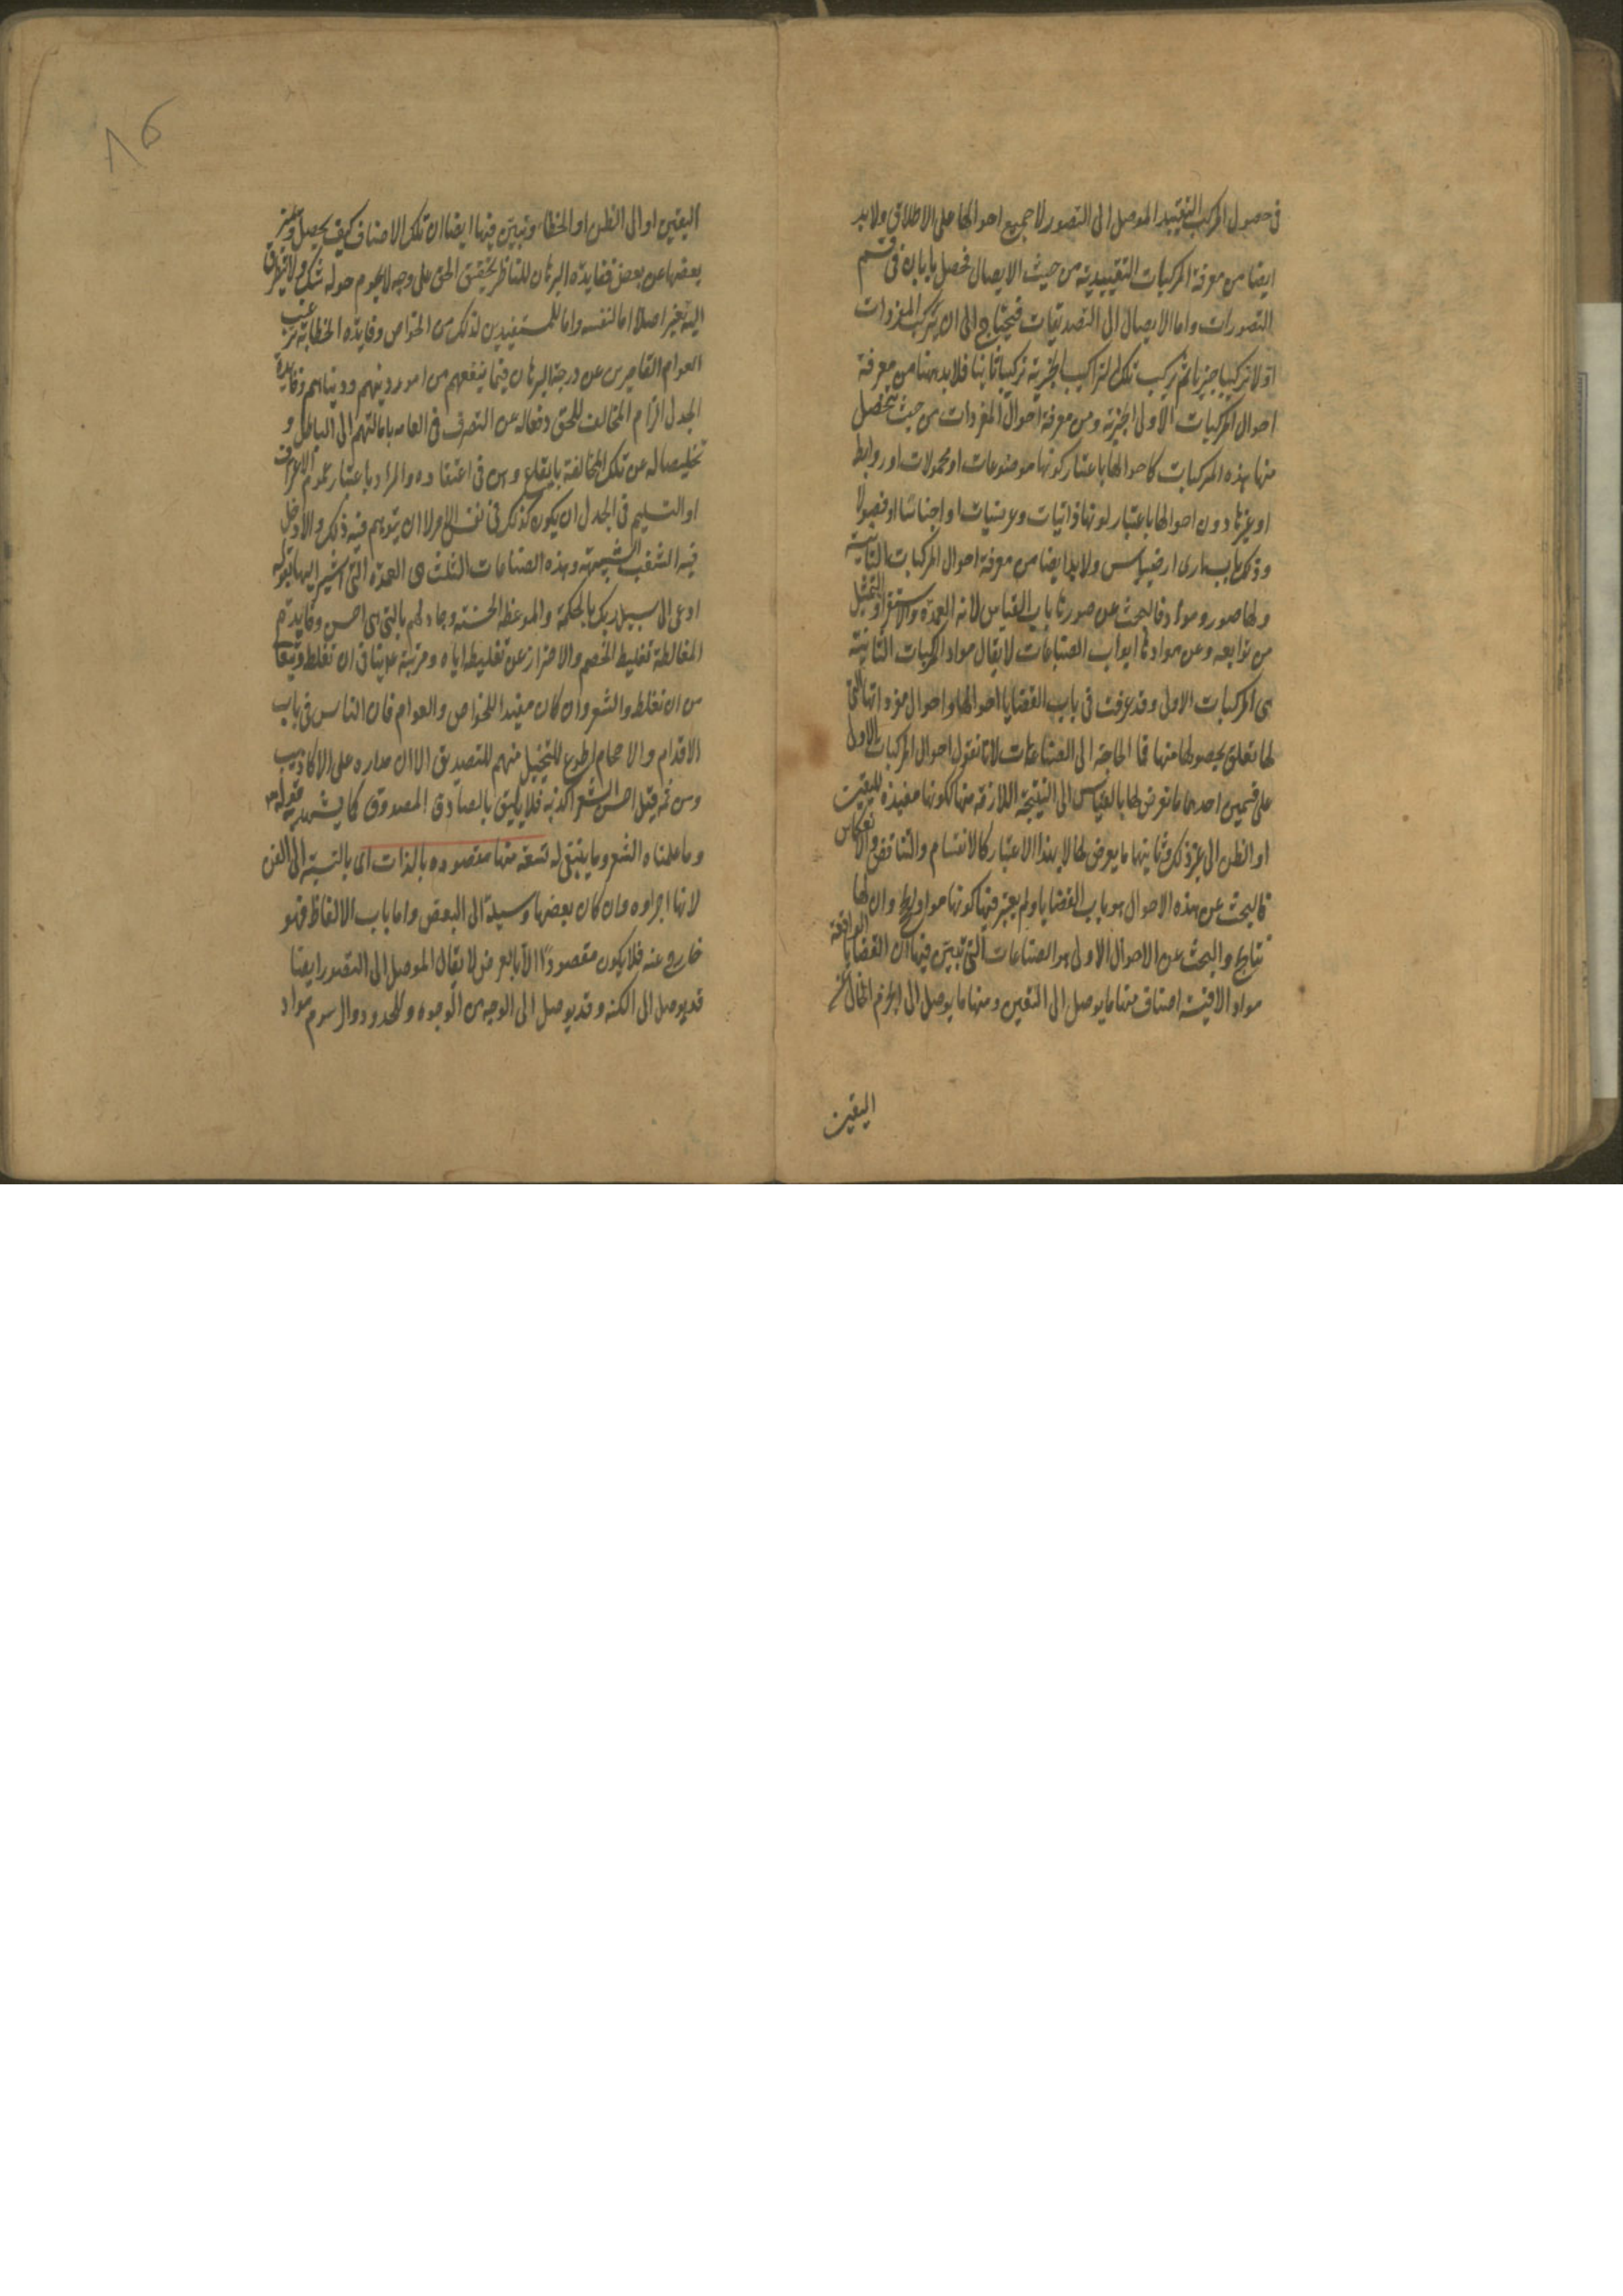 في حصول المركب التقييدي الموصل الى التصور لا جميع احوالها على الاطلاق ولا بد
ايضا من معرفة المركبات التقييدية من حيث الايصال فحصل بابان في قسم
التصورات واما الايصال الى التصديقات فيحتاج الى ان يتركب المفردات
اولا تركيبا خبريا ثم تركيب تلك التراكيب الخبرية تركيبا ثانيا فلا بد ههنا من معرفة
احوال المركبات الاولى الخبرية ومن معرفة احوال المفردات من حيث يتحصل
منها هذه المركبات كاحوالها باعتبار كونها موضوعات او محمولات او روابط
او غيرها دون احوالها باعتبار كونها ذاتيات وعرضيات او اجناسا او فصولا
وذلك باب بارى ارمينياس ولا بد ايضا من معرفة احوال المركبات الثانية
ولها صور ومواد فالبحث عن صورتها باب القياس لانه العمدة والاستقراء والتمثيل
من توابعه وعن موادها ابواب الصناعات لا يقال مواد المركبات الثانية
هى المركبات الاولى وقد عرفت في باب القضايا احوالها واحوال مفرداتها التى
لها تعلق بحصولها منها فما الحاجة الى الصناعات لانا نقول احوال المركبات الاولى
على قسمين احدهما ما تعرض لها بالقياس الى النتيجة اللازمة منها ككونها مفيدة لليقين
او الظن الى غير ذلك وثانيهما ما يعرض لها لا بهذا الاعتبار كالانقسام والتناقض والانعكاس
فالبحث عن هذه الاحوال هو باب القضايا ولم يعتبر فيها كونها مواد وان لها
نتايج والبحث عن الاحوال الاولى هو الصناعات التى تبين فيها ان القضايا الواقعة
مواد الاقيسة اصناف منها ما يوصل الى اليقين ومنها ما يوصل الى الجزم الخالى عن
اليقين
اليقين او الى الظن او الخطاء وتبين فيها ايضا ان تلك الاصناف كيف يحصل وتميز
بعضها عن بعض ففايدة البرهان للناظر تحقيق الحق على وجه لا يحوم حوله شك ولا يتطرق
اليه تغير اصلا اما لنفسه واما للمستفيدين لذلك من الخواص وفايدة الخطابة ترغيب
العوام القاصرين عن درجة البرهان فيما ينفعهم من امور دينهم ودنياهم وفايدة
الجدل الزام المخالف للحق دفعا له عن التصرف في العامه بامالتهم الى الباطل و
تخليصا له عن تلك المخالفة بايقاع وهن في اعتقاده والمراد باعتبار عموم الاعتراف
او التسليم في الجدل ان يكون كذلك في نفس الامر لا ان يتوهم فيه ذلك والا دخل
فيه الشغب الشبيه به وهذه الصناعات الثلث هى العمدة التى اشير اليها بقوله
ادع الى سبيل ربك بالحكمة والموعظة الحسنة وجادلهم بالتى هى احسن وفايدة
المغالطة تغليط الخصم والاحتراز عن تغليطه اياه ومرتبة علينا في ان تغلط وتتعالى
من ان تغلط والشعر وان كان مفيدا للخواص والعوام فان الناس في باب
الاقدام والاحجام اطوع للتخييل منهم للتصديق الا ان مداره على الاكاذيب
ومن ثمه قيل احسن الشعر اكذبه فلا يليق بالصادق المصدوق كما يشهد به قوله تع
وما علمناه الشعر وما ينبغى له تسعة منها مقصوده بالذات اى بالنسبة الى الفن
لانها اجزاوه وان كان بعضها وسيلة الى البعض واما باب الالفاظ فهو
خارج عنه فلا يكون مقصودا الا بالعرض لا يقال الموصل الى التصور ايضا
قد يوصل الى الكنه وقد يوصل الى الوجه من الوجوه وللحدود والرسوم مواد